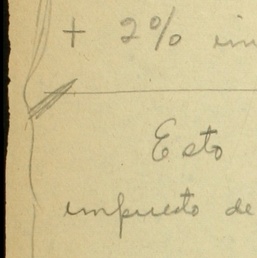 + 2% im
Esto
impuesto de